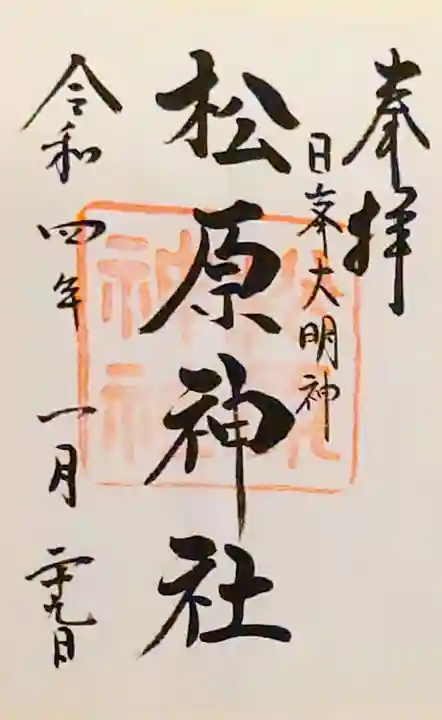 奉拝
日峯大明神
松原神社
令和四年一月二十九日